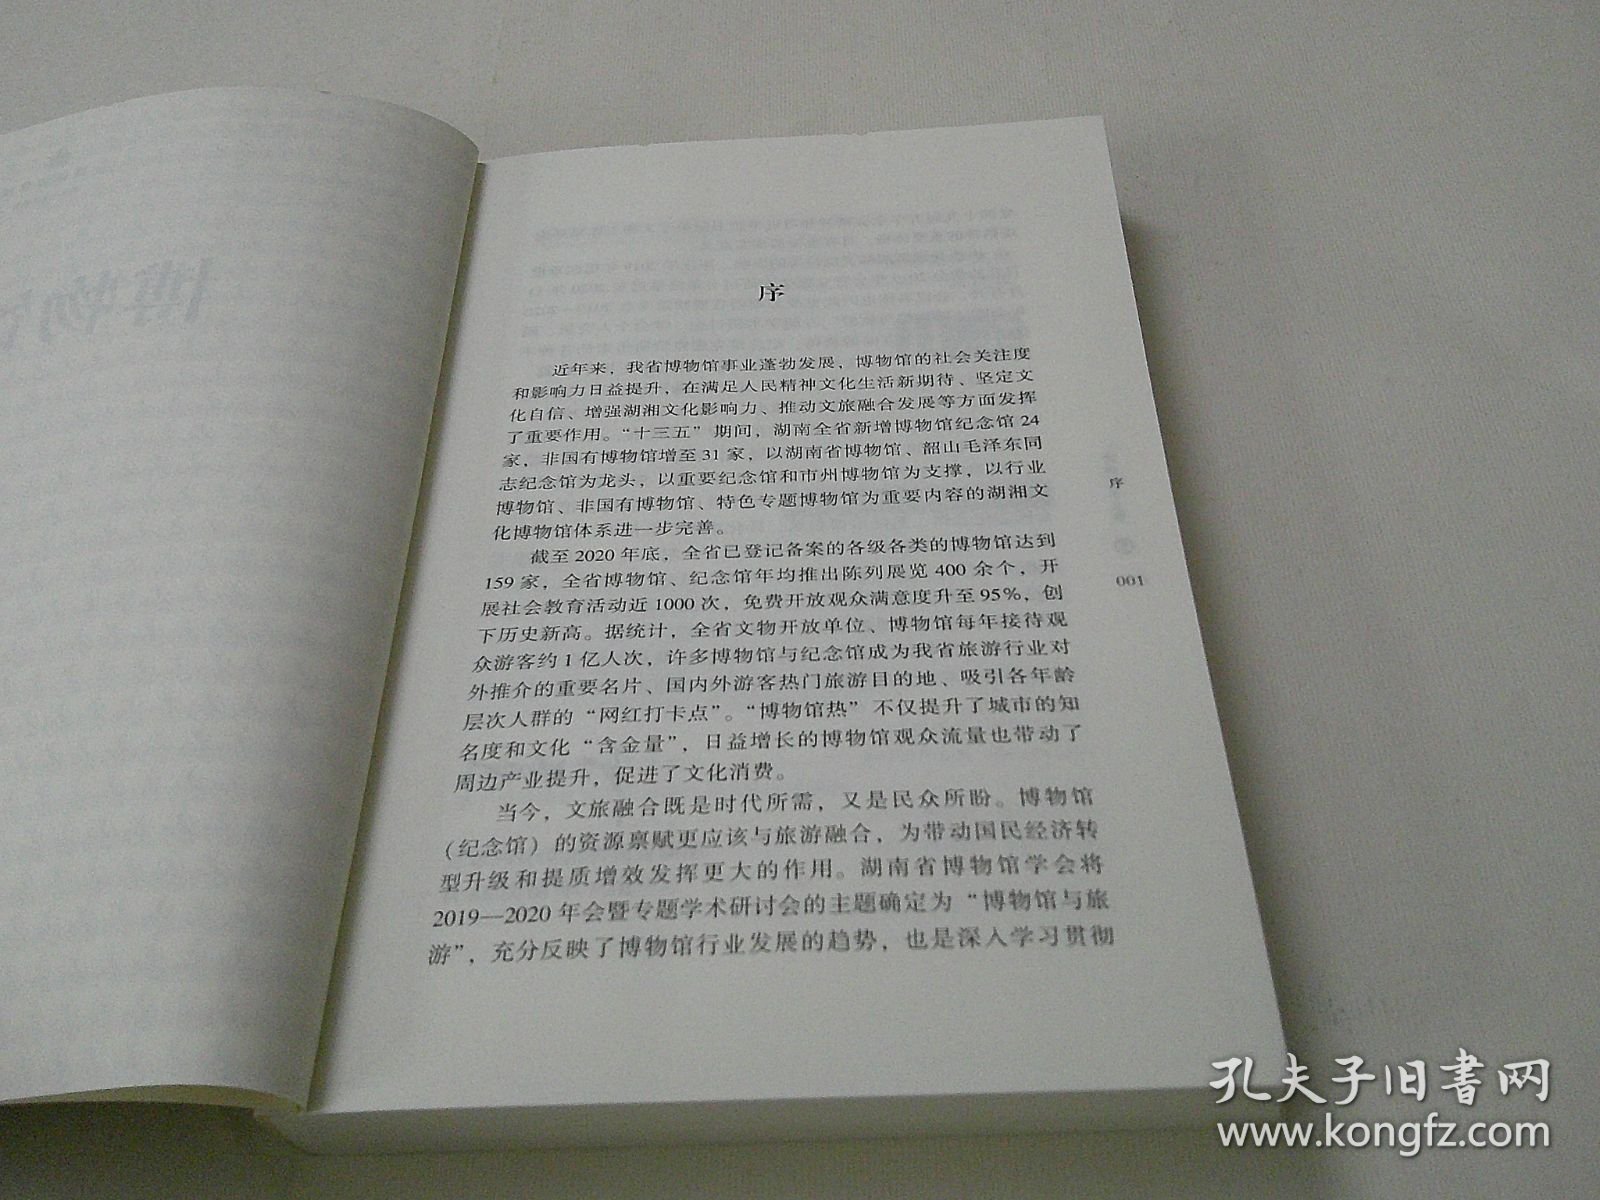 博物
序
近年来，我省博物馆事业蓬勃发展，博物馆的社会关注度
和影响力日益提升，在满足人民精神文化生活新期待、坚定文
化自信、增强湖湘文化影响力、推动文旅融合发展等方面发挥
了重要作用。“十三五”期间，湖南全省新增博物馆纪念馆 24
家，非国有博物馆增至 31 家，以湖南省博物馆、韶山毛泽东同
志纪念馆为龙头，以重要纪念馆和市州博物馆为支撑，以行业
博物馆、非国有博物馆、特色专题博物馆为重要内容的湖湘文
化博物馆体系进一步完善。
截至 2020 年底，全省已登记备案的各级各类的博物馆达到
159 家，全省博物馆、纪念馆年均推出陈列展览 400 余个，开
展社会教育活动近 1000 次，免费开放观众满意度升至 95%，创
下历史新高。据统计，全省文物开放单位、博物馆每年接待观
众游客约 1 亿人次，许多博物馆与纪念馆成为我省旅游行业对
外推介的重要名片、国内外游客热门旅游目的地、吸引各年龄
层次人群的“网红打卡点”。“博物馆热”不仅提升了城市的知
名度和文化“含金量”，日益增长的博物馆观众流量也带动了
周边产业提升，促进了文化消费。
当今，文旅融合既是时代所需，又是民众所盼。博物馆
（纪念馆）的资源禀赋更应该与旅游融合，为带动国民经济转
型升级和提质增效发挥更大的作用。湖南省博物馆学会将
2019—2020 年会暨专题学术研讨会的主题确定为“博物馆与旅
游”，充分反映了博物馆行业发展的趋势，也是深入学习贯彻
序
001
孔夫子旧书网
www.kongfz.com